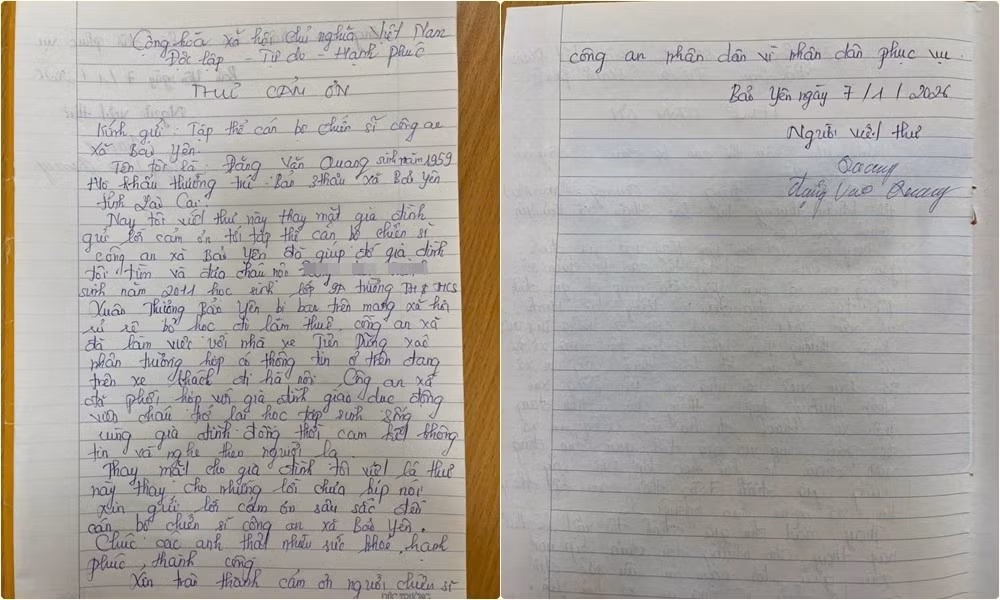 Cộng hoà xã hội chủ nghĩa Việt Nam
Độc lập - Tự do - Hạnh phúc
THƯ CẢM ƠN
Kính gửi: Tập thể cán bộ chiến sĩ công an
xã Bảo Yên.
Tên tôi là: Đặng Văn Quang sinh năm 1959
Hộ khẩu thường trú: Bản 3 thâu xã Bảo Yên
tỉnh Lào Cai.
Nay tôi viết thư này thay mặt gia đình
gửi lời cảm ơn tới tập thể cán bộ chiến sĩ
công an xã Bảo Yên đã giúp đỡ gia đình
tôi tìm và đưa cháu nội
sinh năm 2011 học sinh lớp 9A trường TH & THCS
Xuân Thượng Bảo Yên bị bạn trên mạng xã hội
rủ rê bỏ học đi làm thuê. công an xã
đã làm việc với nhà xe Tiến Dũng xác
nhận trường hợp có thông tin ở trên đang
trên xe khách đi hà nội. Công an xã
đã phối hợp với gia đình giáo dục động
viên cháu trở lại học tập sinh sống
cùng gia đình đồng thời cam kết không
tin và nghe theo người lạ.
Thay mặt cho gia đình tôi viết lá thư
này thay cho những lời chưa kịp nói
xin gửi lời cảm ơn sâu sắc đến
cán bộ chiến sĩ công an xã Bảo Yên.
Chúc các anh thật nhiều sức khoẻ, hạnh
phúc, thành công
Xin trân thành cảm ơn người chiến sĩ
công an nhân dân vì nhân dân phục vụ.
Bảo Yên ngày 7/1/2026
Người viết thư
Quang
Đặng Văn Quang